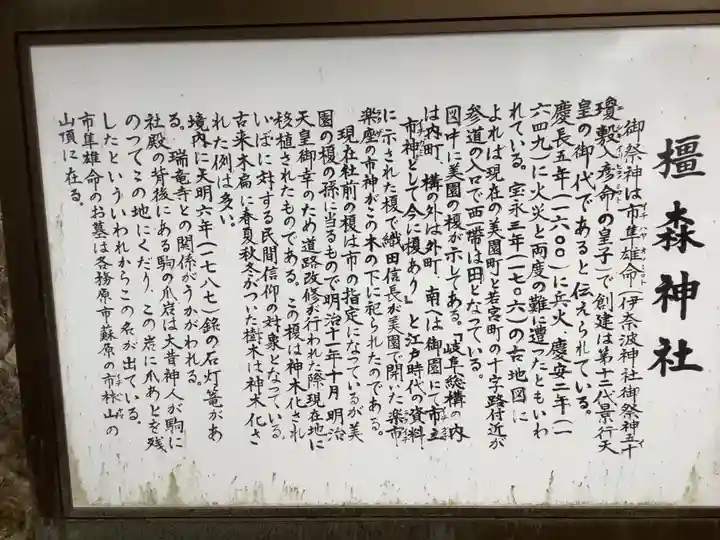 橿森神社
御祭神は市隼雄命（伊奈波神社御祭神五十
瓊敷入彦命の皇子）で創建は第十二代景行天
皇の御代であると伝えられている。
慶長五年（一六〇〇）に兵火、慶安二年（一
六四九）に火災と両度の難に遭ったともいわ
れている。宝永三年（一七〇六）の古地図に
よれば現在の美園町と若宮町の十字路付近が
参道の入口で西一帯は田となっている。
図中に美園の榎が示してある。「岐阜総構の内
は内町、構の外は外町、南へは御園にて市立
市神として今に榎あり」と江戸時代の資料
に示された榎で織田信長が美園で開いた楽市
楽座の市神がこの木の下に祀られたのである。
現在社前の榎は市の指定になっているが美
園の榎の孫に当るもので明治十一年十月、明治
天皇御幸のため道路改修が行われた際現在地に
移植されたものである。この榎は神木化され
いぼに対する民間信仰の対象となっている。
古来木扁に春夏秋冬がついた樹木は神木化さ
れた例は多い。
境内に天明六年（一七八七）銘の石灯篭があ
る。瑞竜寺との関係がうかがわれる。
社殿の背後にある駒の爪岩は大昔神人が駒に
のってこの地にくだり、この岩に爪あとを残
したといういわれからこの名が出ている。
市隼雄命のお墓は各務原市蘇原の市林山の
山頂に在る。